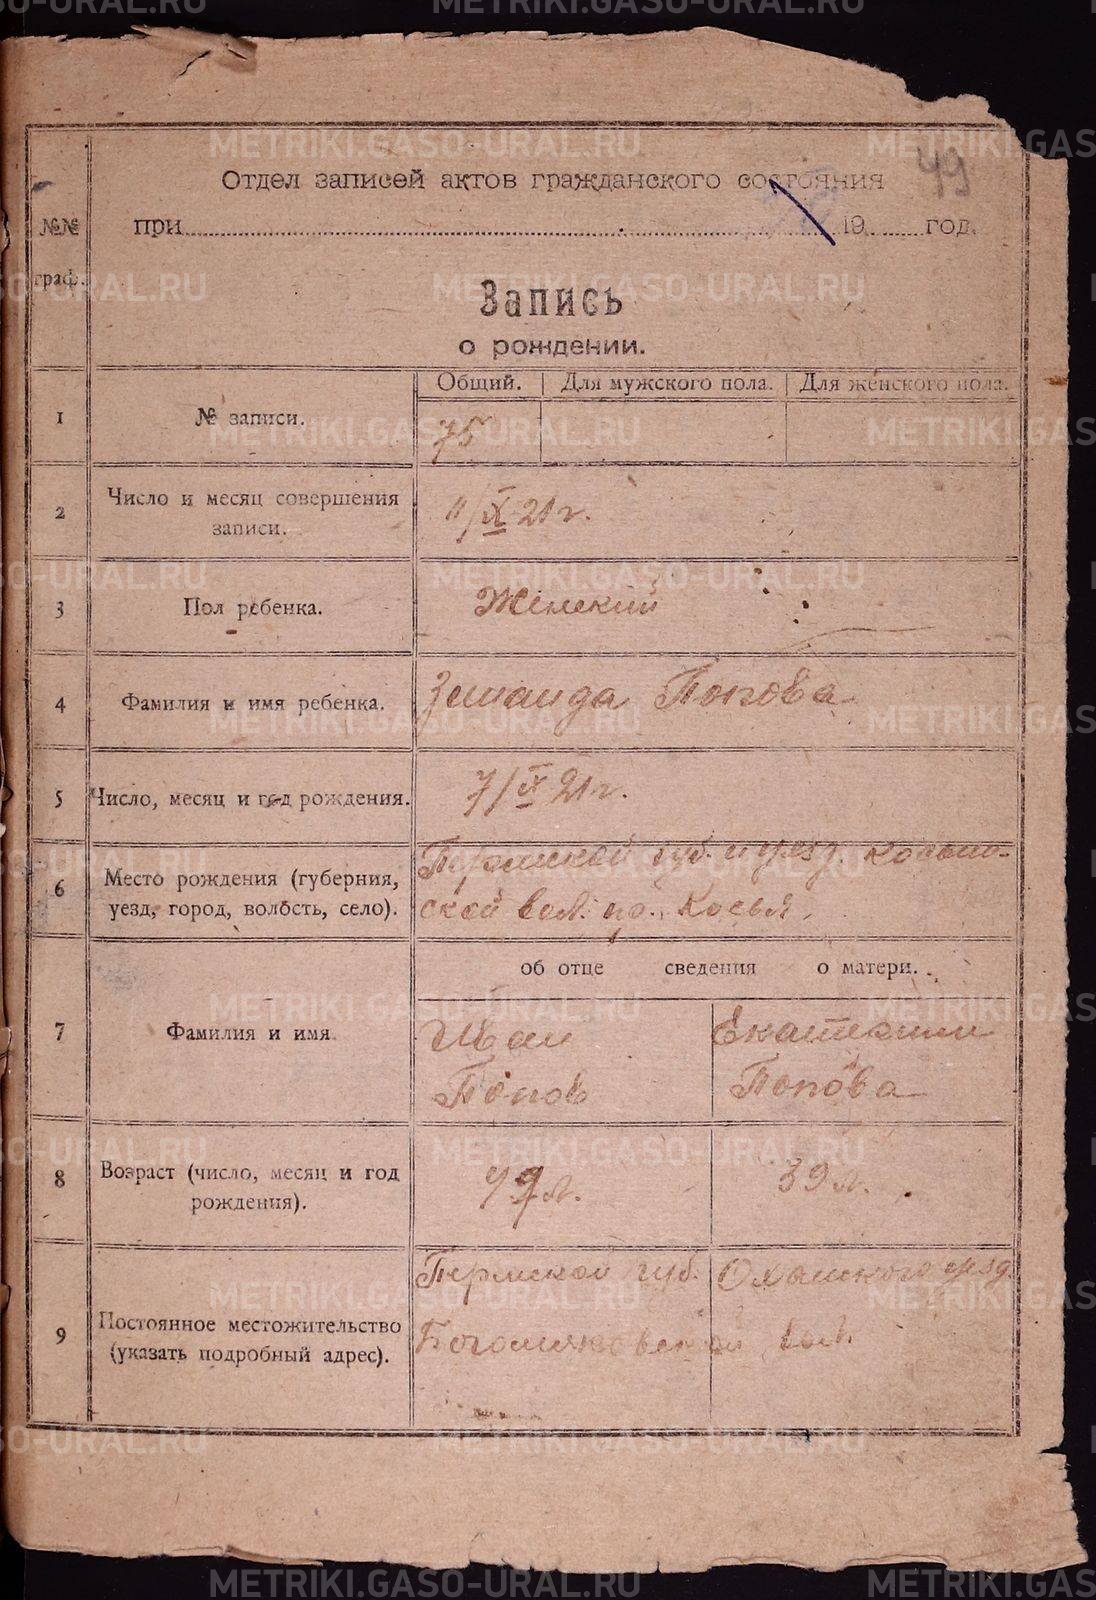 49
Отдел записей актов гражданского состояния
№№ граф.
при 19 год.
Запись
о рождении.
Общий. Для мужского пола. Для женского пола.
1 № записи. 75
2 Число и месяц совершения записи. 11/X 21 г.
3 Пол ребенка. Женский
4 Фамилия и имя ребенка. Зинаида Попова
5 Число, месяц и год рождения. 7/X 21 г.
6 Место рождения (губерния, уезд, город, волость, село).
Пермской губ. и уезд. Косьин-
ской вол. Косья.
об отце сведения о матери.
7 Фамилия и имя
Иван Екатерина
Попов Попова
8 Возраст (число, месяц и год рождения). 49 л. 39 л.
9 Постоянное местожительство (указать подробный адрес).
Пермской губ. Оханского уезд.
вол.
METRIKI.GASO-URAL.RU